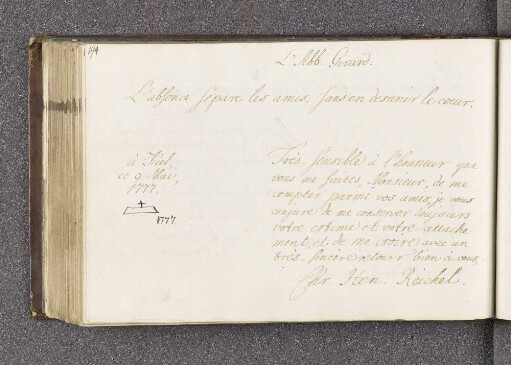 194
L'Abb. Girard.
L'absence sépare les amis, sans en desunir le coeur.
à Kiel,
ce 9 Mai,
1777.
1777.
Très sensible à l'honneur que
vous me faites, Monsieur, de me
compter parmi vos amis, je vous
conjure de me conserver toujours
votre estime et votre attache
ment, et de me croire avec un
très sincère retour bien à vous.
Chr. Hen. Reichel.